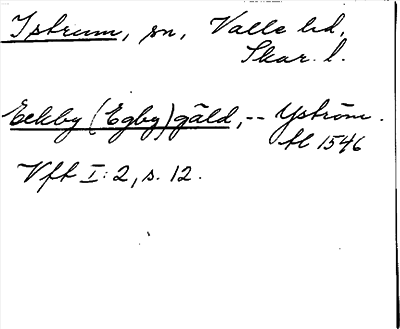 Istrum, sn, Valle hd,
Skar. l.
Eckby (Egby) gäld, -- Yström.
tl 1546
Vft I: 2, s. 12.